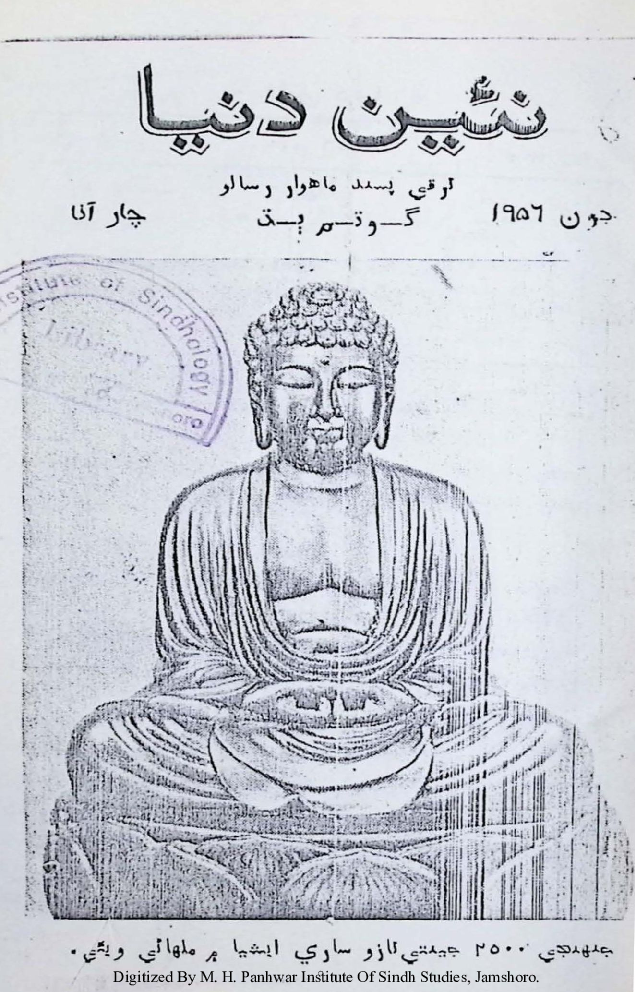 نئين دنيا
ترقي پسند ماهوار رسالو
جون ١٩٥٦ گوتم ٻڌ چار آنا
Institute of Sindhology
Library
جنهنجي ٢٥٠٠ جينتي تازو ساري ايشيا ۾ ملهائي ويئي.
Digitized By M. H. Panhwar Institute Of Sindh Studies, Jamshoro.